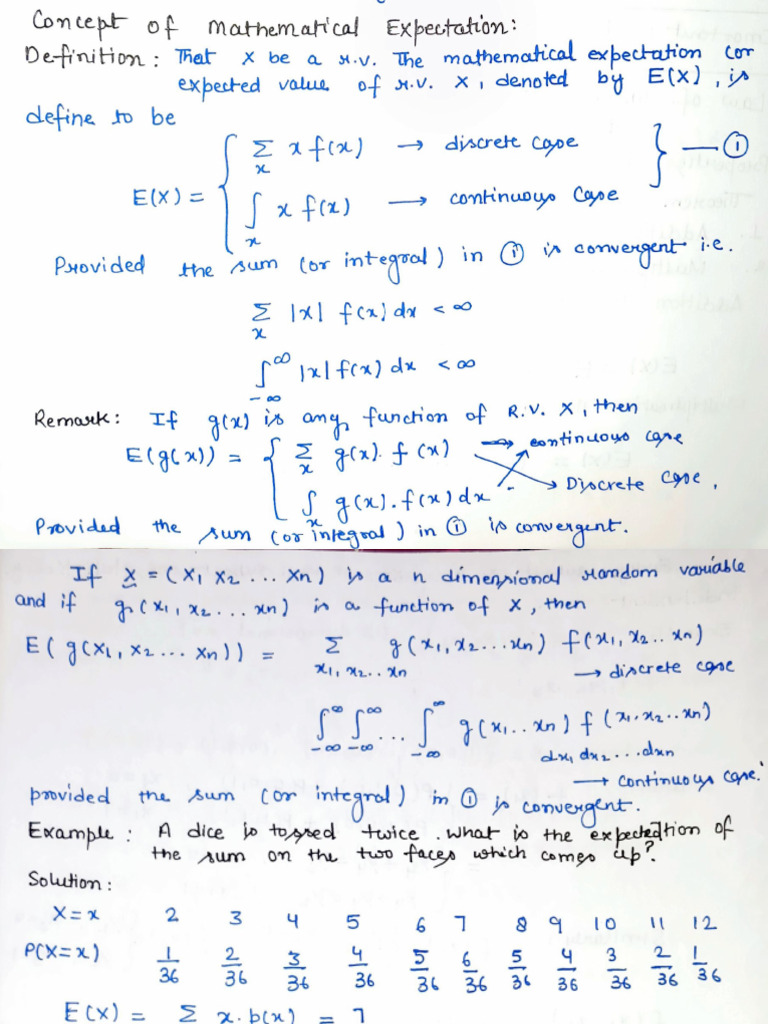 Concept of Mathematical Expectation:
Definition: That X be a r.v. The mathematical expectation (or
expected value of r.v. X, denoted by E(X), is
define to be
Σ x f(x) → discrete case
x
E(X) = { } — ①
∫ x f(x) → continuous case
x
Provided the sum (or integral) in ① is convergent i.e.
Σ |x| f(x) dx < ∞
x
∫ |x| f(x) dx < ∞
-∞ ∞
Remark: If g(x) is any function of R.V. X, then
E(g(x)) = { Σ g(x). f(x) → continuous case
x
∫ g(x). f(x) dx → Discrete case,
x
Provided the sum (or integral) in ① is convergent.
If X = (X1 X2 ... Xn) is a n dimensional random variable
and if g(x1, x2 ... xn) is a function of X, then
E(g(x1, x2 ... xn)) = Σ g(x1, x2 ... xn) f(x1, x2 .. xn)
x1, x2 .. xn → discrete case
∫∫ ... ∫ g(x1 .. xn) f(x1, x2 .. xn)
-∞ ∞ -∞ ∞ -∞ ∞
dx1 dx2 ... dxn
→ continuous case.
provided the sum (or integral) in ① is convergent.
Example: A dice is tossed twice. What is the expectation of
the sum on the two faces which comes up?
Solution:
X=x 2 3 4 5 6 7 8 9 10 11 12
P(X=x) 1/36 2/36 3/36 4/36 5/36 6/36 5/36 4/36 3/36 2/36 1/36
E(X) = Σ x. p(x) = 7